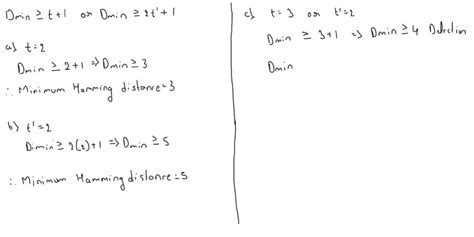 Dmin ≥ t+1 or Dmin ≥ 2t'+1
a) t=2
Dmin ≥ 2+1 ⇒ Dmin ≥ 3
∴ Minimum Hamming distance = 3
b) t'=2
Dmin ≥ 2(2)+1 ⇒ Dmin ≥ 5
∴ Minimum Hamming distance = 5
c) t=3 or t'=2
Dmin ≥ 3+1 ⇒ Dmin ≥ 4 Detection
Dmin